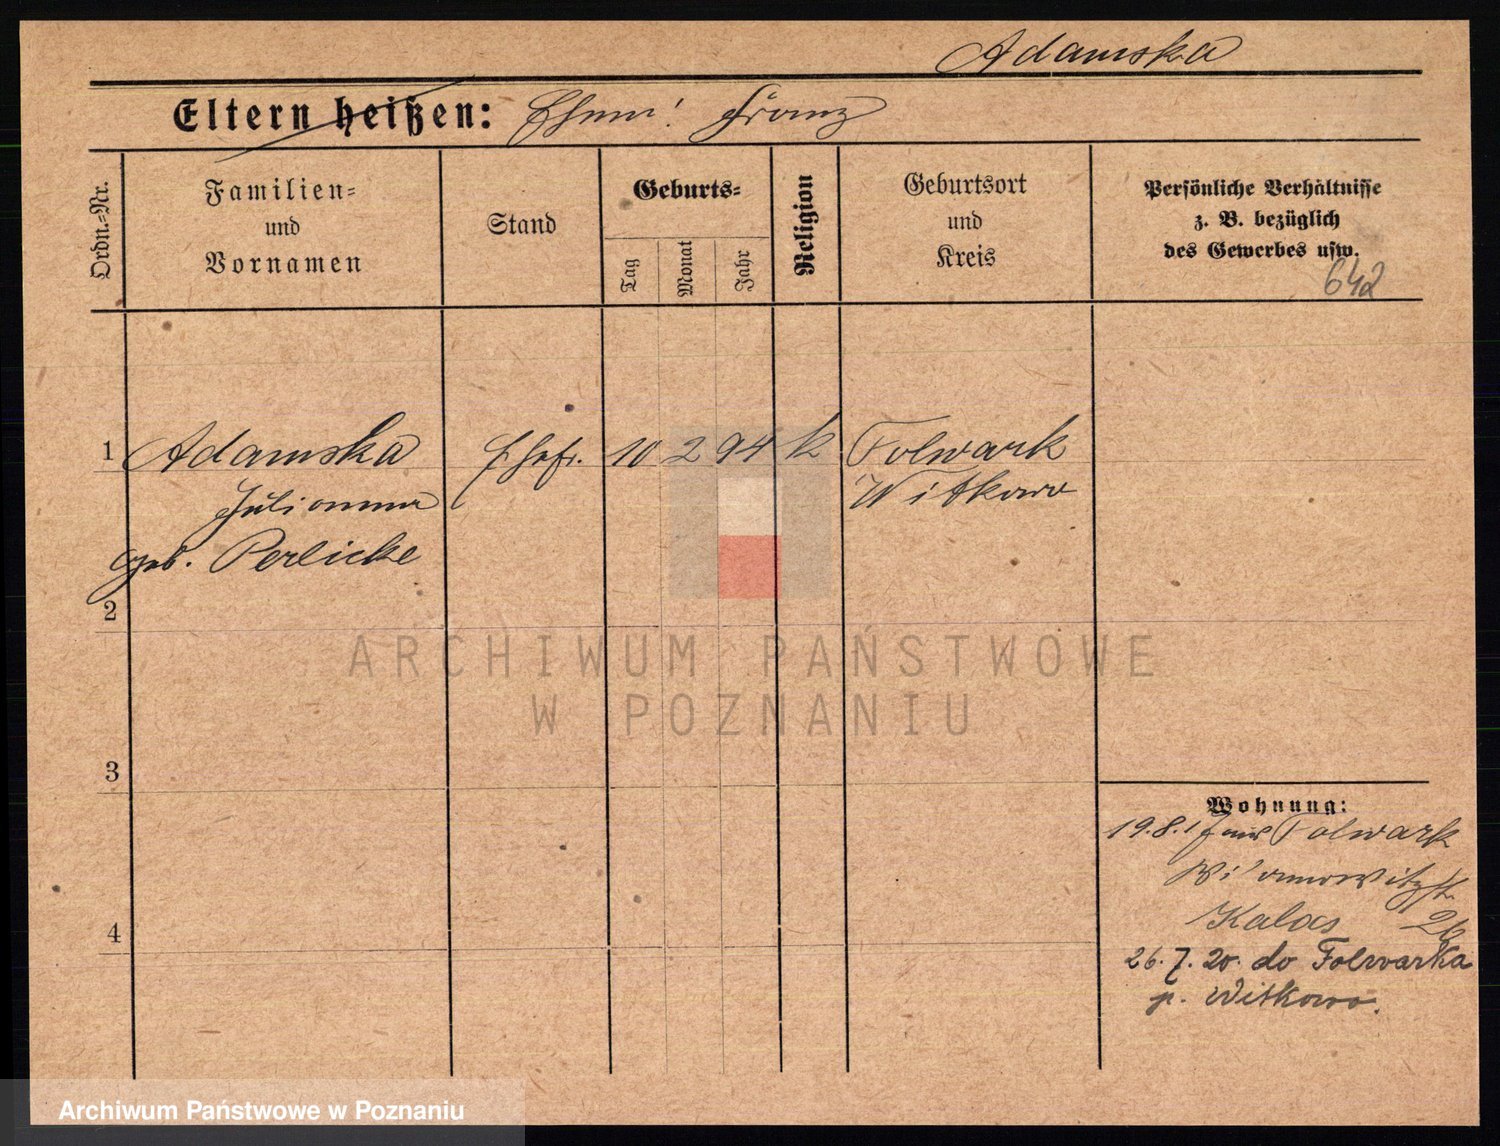 Adamska
Eltern heißen: Ehem: Franz
Ordn.=Nr.
Familien=
und
Vornamen
Stand
Geburts=
Tag
Monat
Jahr
Religion
Geburtsort
und
Kreis
Persönliche Verhältnisse
z. B. bezüglich
des Gewerbes usw.
642
1 Adamska Ehefr. 10 2 94 k Folwark
Julianna Witkowo
geb. Perlicke
2
ARCHIWUM PAŃSTWOWE
W POZNANIU
3
Wohnung:
19.8.17 aus Folwark
Kalas 26
4
26.7.20. do Folwarka
p. Witkowo.
Archiwum Państwowe w Poznaniu